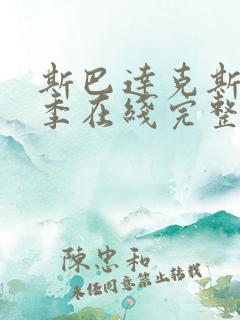 斯巴达克斯
季在线完整
陈忠和
未经同意禁止转载